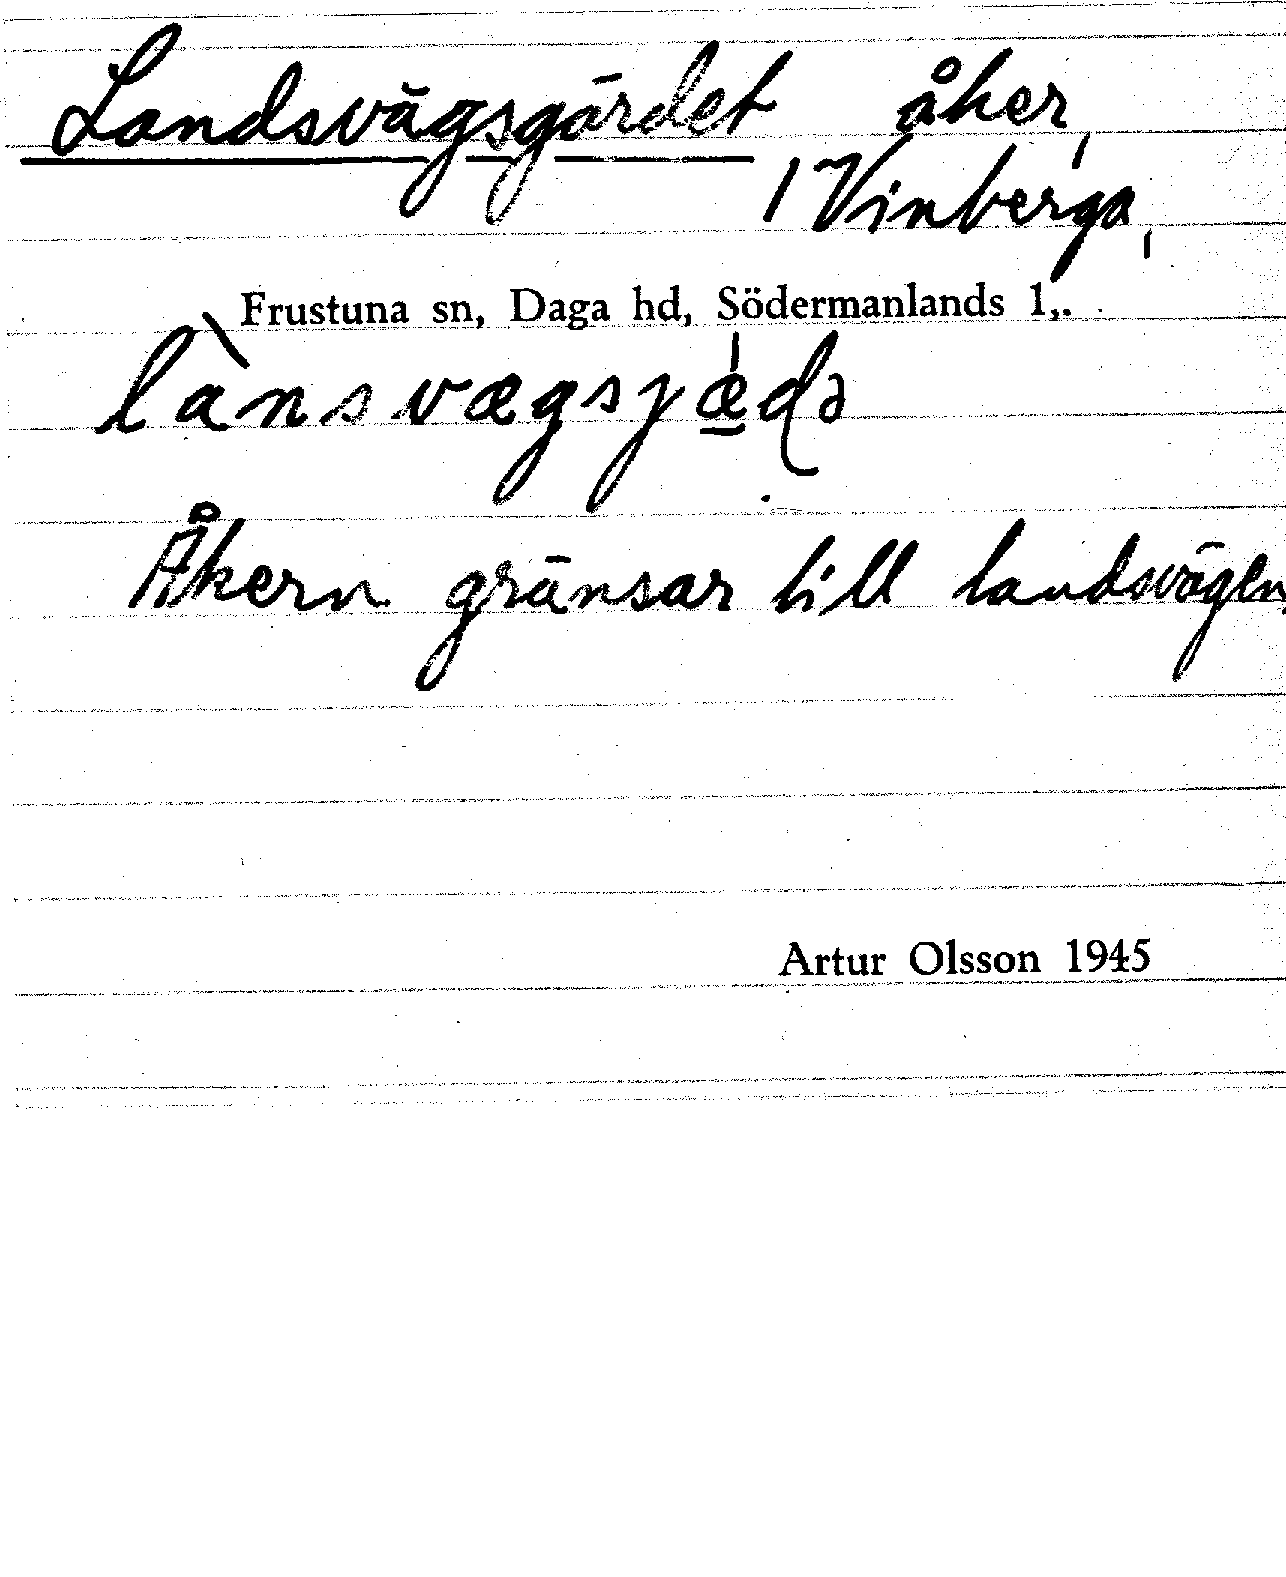 Landsvägsgärdet åker,
1 Vinberga,
Frustuna sn, Daga hd, Södermanlands l,.
lànsvægsjǽ̲ɖə
Åkern gränsar till landsvägen.
Artur Olsson 1945